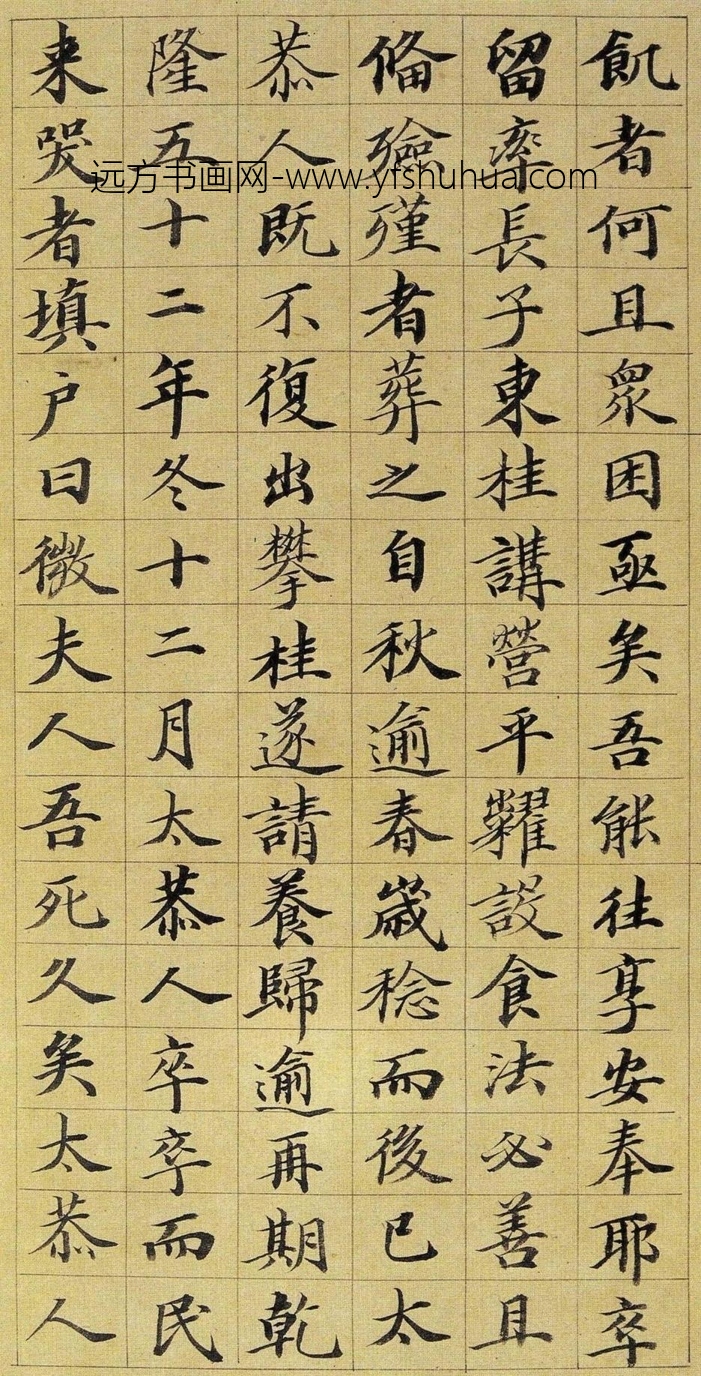 飢者何且眾困亟矣吾能往享安奉耶卒
留率長子東桂講營平糴設食法必善且
備殮殣者葬之自秋逾春歲稔而後已太
恭人既不復出攀桂遂請養歸逾再期乾
隆五十二年冬十二月太恭人卒卒而民
来哭者填户曰微夫人吾死久矣太恭人
远方书画网-www.yfshuhua.com